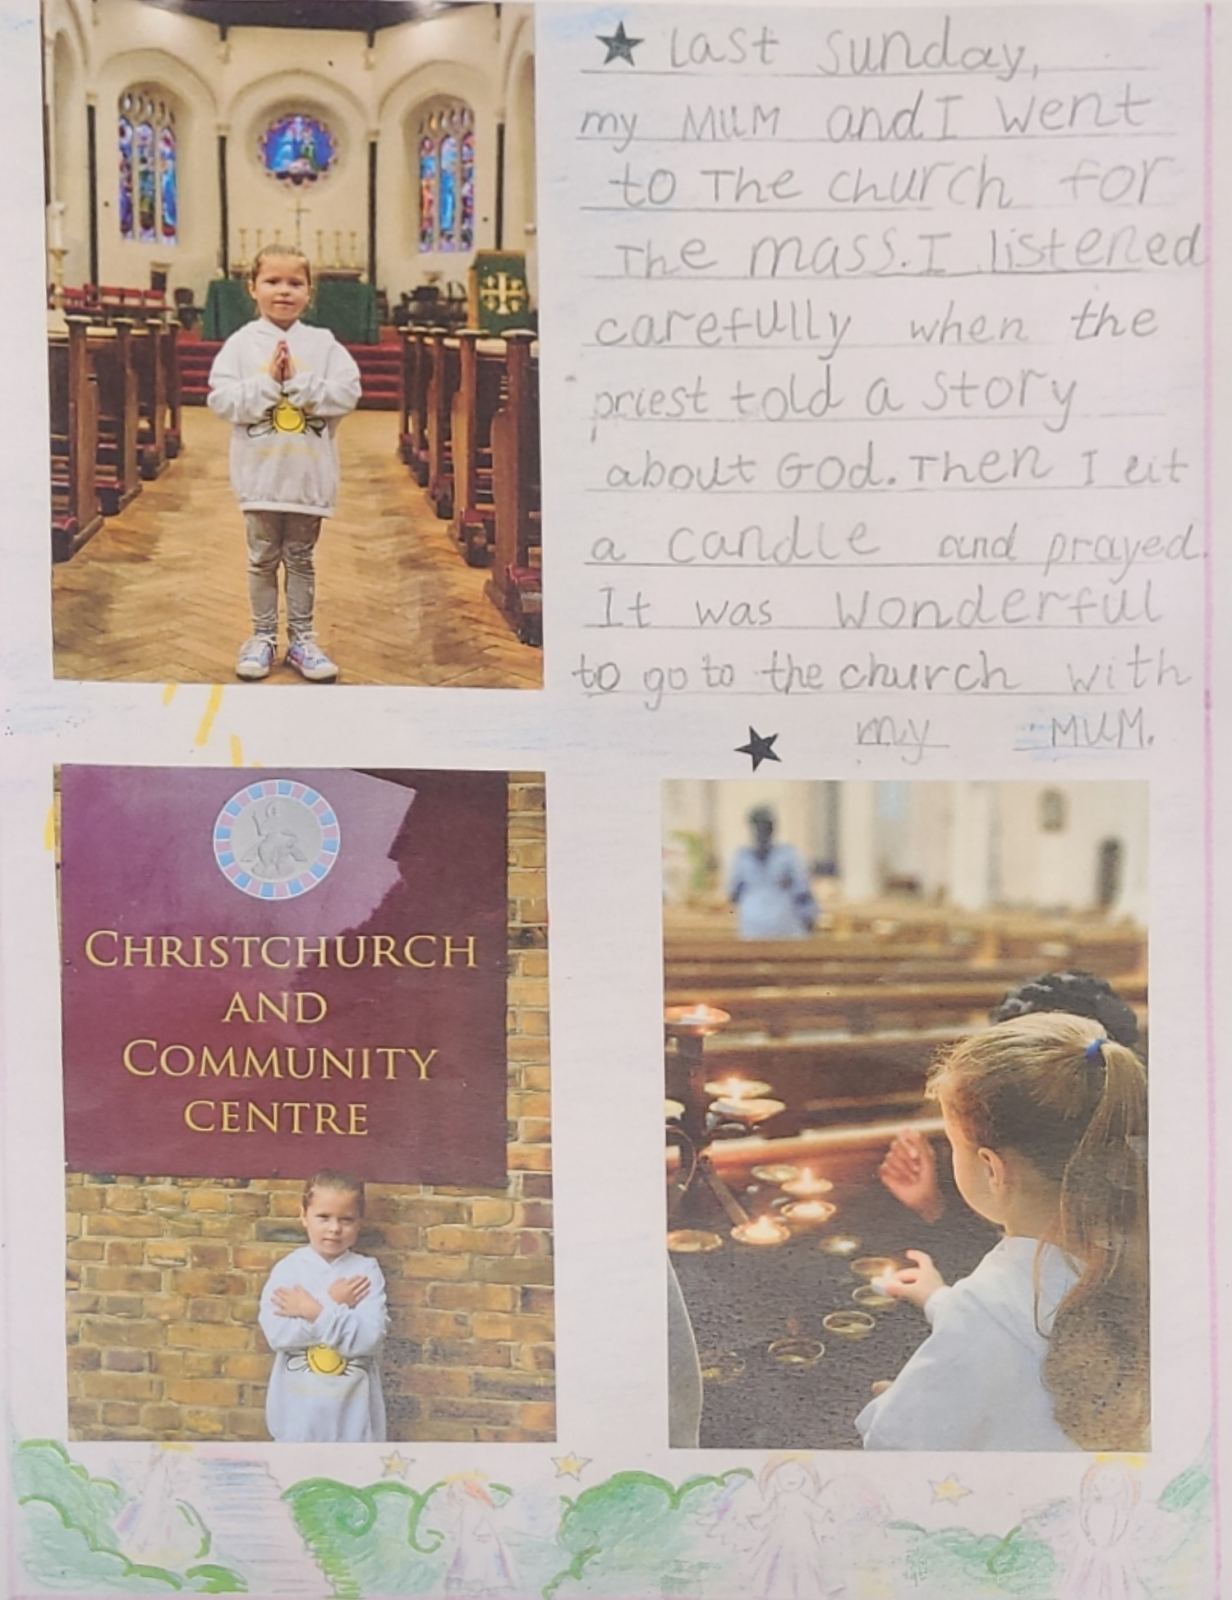 Last Sunday,
my MUM and I went
to The church for
The mass. I listened
carefully when the
priest told a story
about God. Then I lit
a candle and prayed.
It was wonderful
to go to the church with
my MUM.
CHRISTCHURCH
AND
COMMUNITY
CENTRE